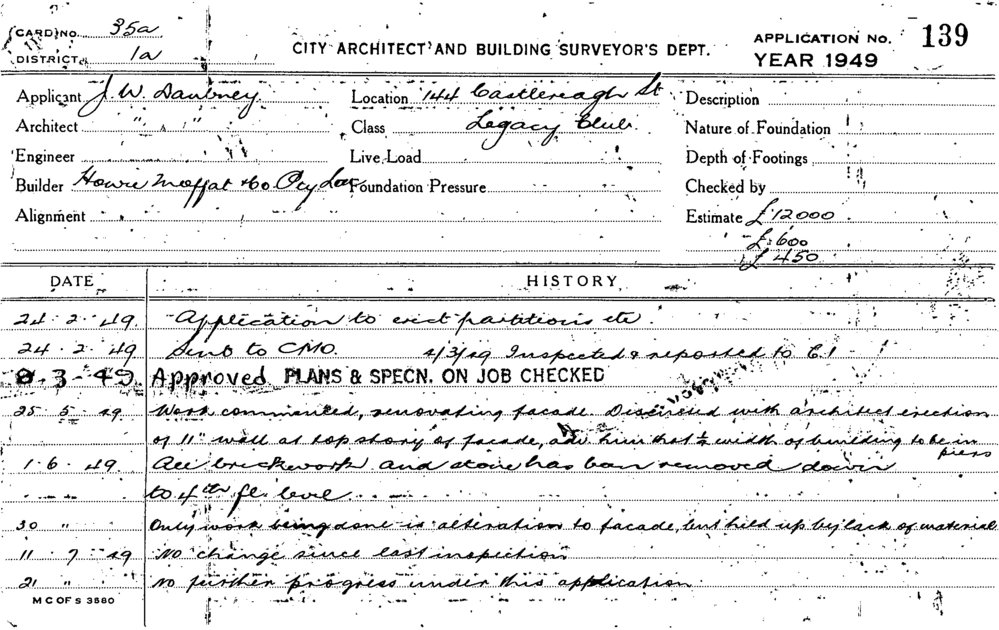 CARD NO. 35a
DISTRICT 1a
CITY ARCHITECT AND BUILDING SURVEYOR'S DEPT.
APPLICATION No. 139
YEAR 1949
Applicant J. W. Daubney
Architect " " "
Engineer
Builder Howie Moffat & Co Pty Ltd
Alignment
Location 144 Castlereagh St
Class Legacy Club
Live Load
Foundation Pressure
Description
Nature of Foundation
Depth of Footings
Checked by
Estimate £12000
£600
£450
DATE HISTORY
24. 2. 49. Application to erect partitions etc.
24. 2. 49 Sent to CMO. 4/3/49 Inspected & reported to C.I
8. 3. 49 Approved PLANS & SPECN. ON JOB CHECKED
25. 5. 49 Work commenced, renovating facade. Discussed with architect erection
of 11" wall at top story of facade, adv him that ½ width of building to be in
piers
1. 6. 49 All brickwork and stone has been removed down
to 4th fl. level
30 " Only work being done is alteration to facade, but held up by lack of material
11. 7. 49 No change since last inspection
21 " No further progress under this application
M C OF S 3580